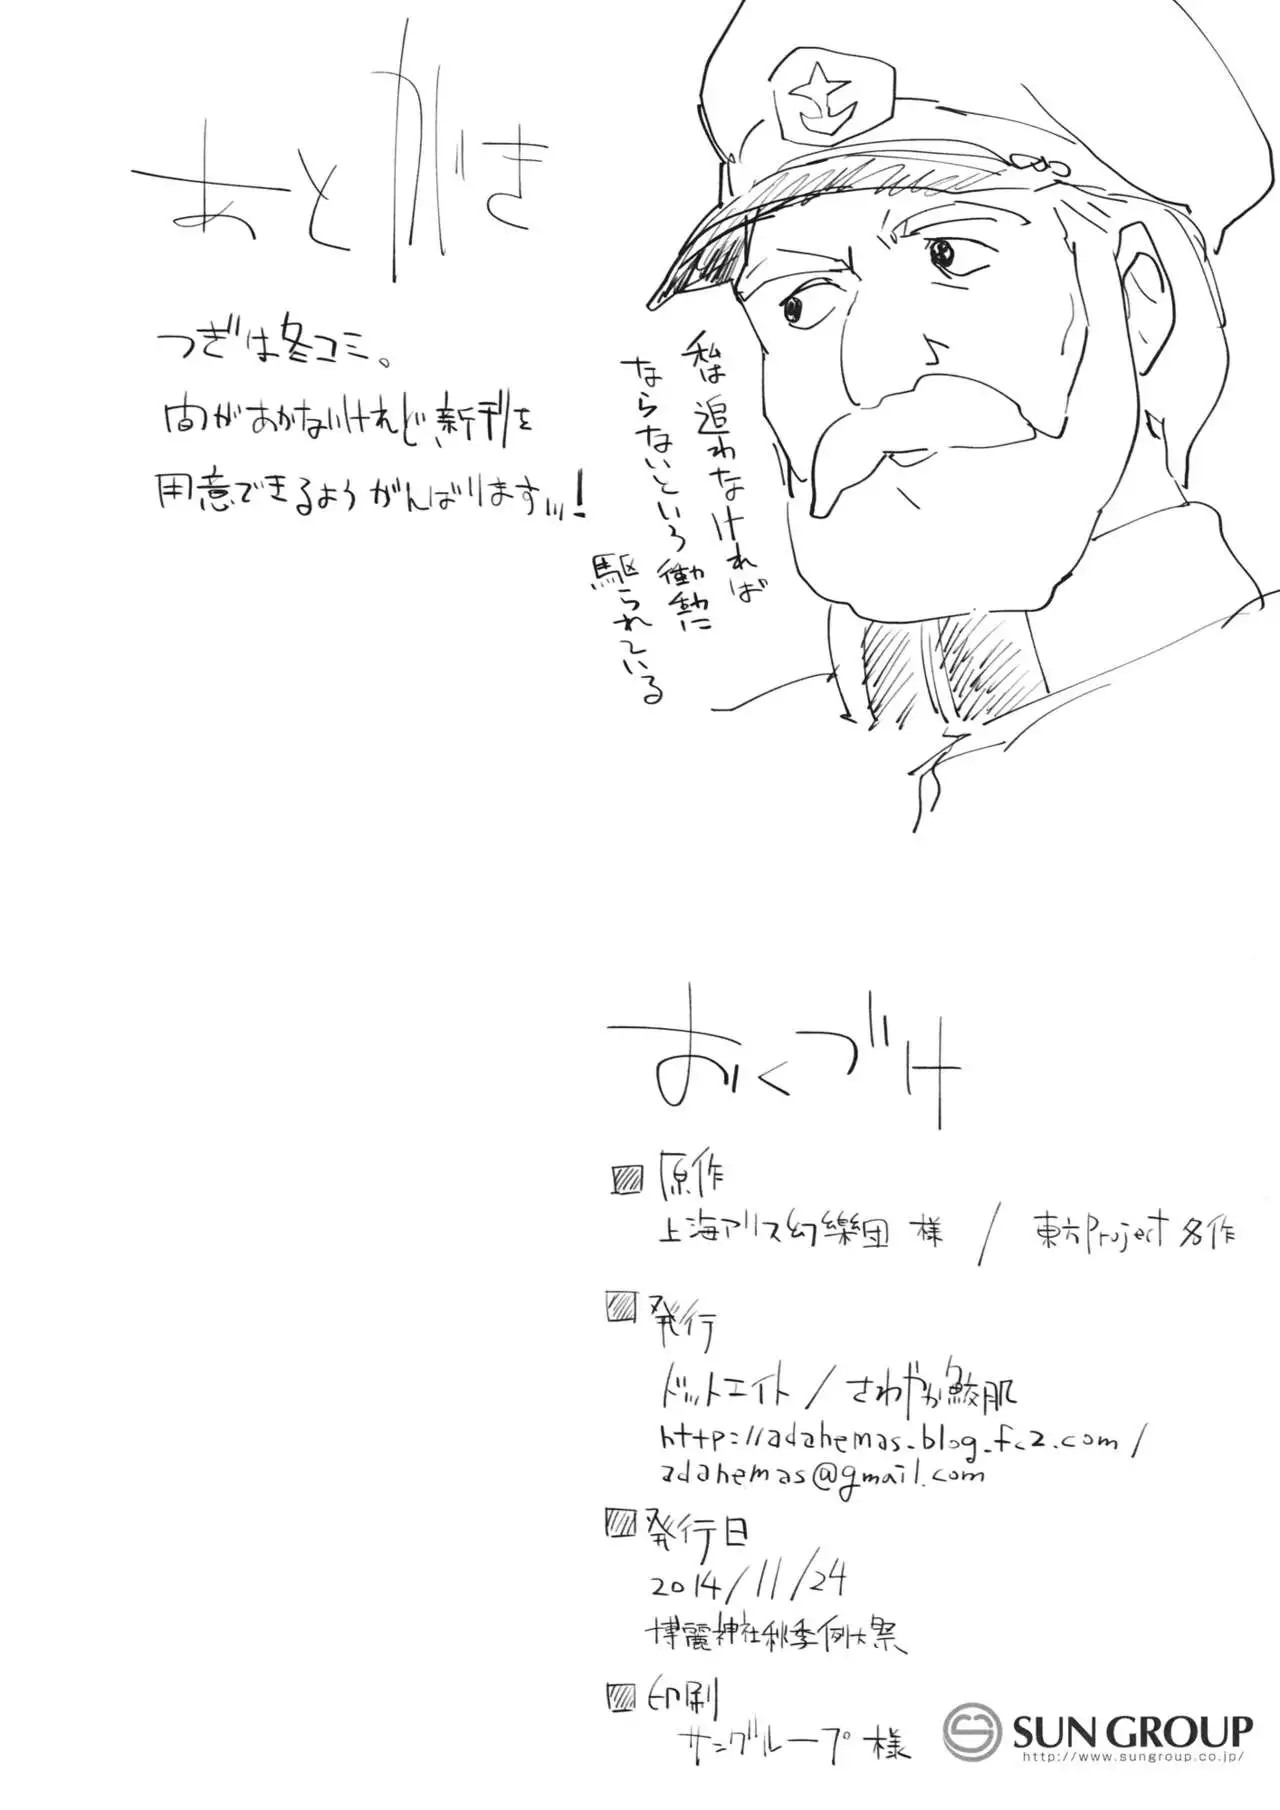 あとがき
つぎは冬コミ。
間があかないけれど、新刊を
用意できるようがんばります…!
私は追わなければ
ならないという衝動に
駆られている
おくづけ
原作
上海アリス幻樂団 様 / 東方Project 各作
発行
ドットエイト / さわやか鮫肌
http://adahemas.blog.fc2.com/
adahemas@gmail.com
発行日
2014/11/24
博麗神社秋季例大祭
印刷
サングループ 様
SUN GROUP
http://www.sungroup.co.jp/